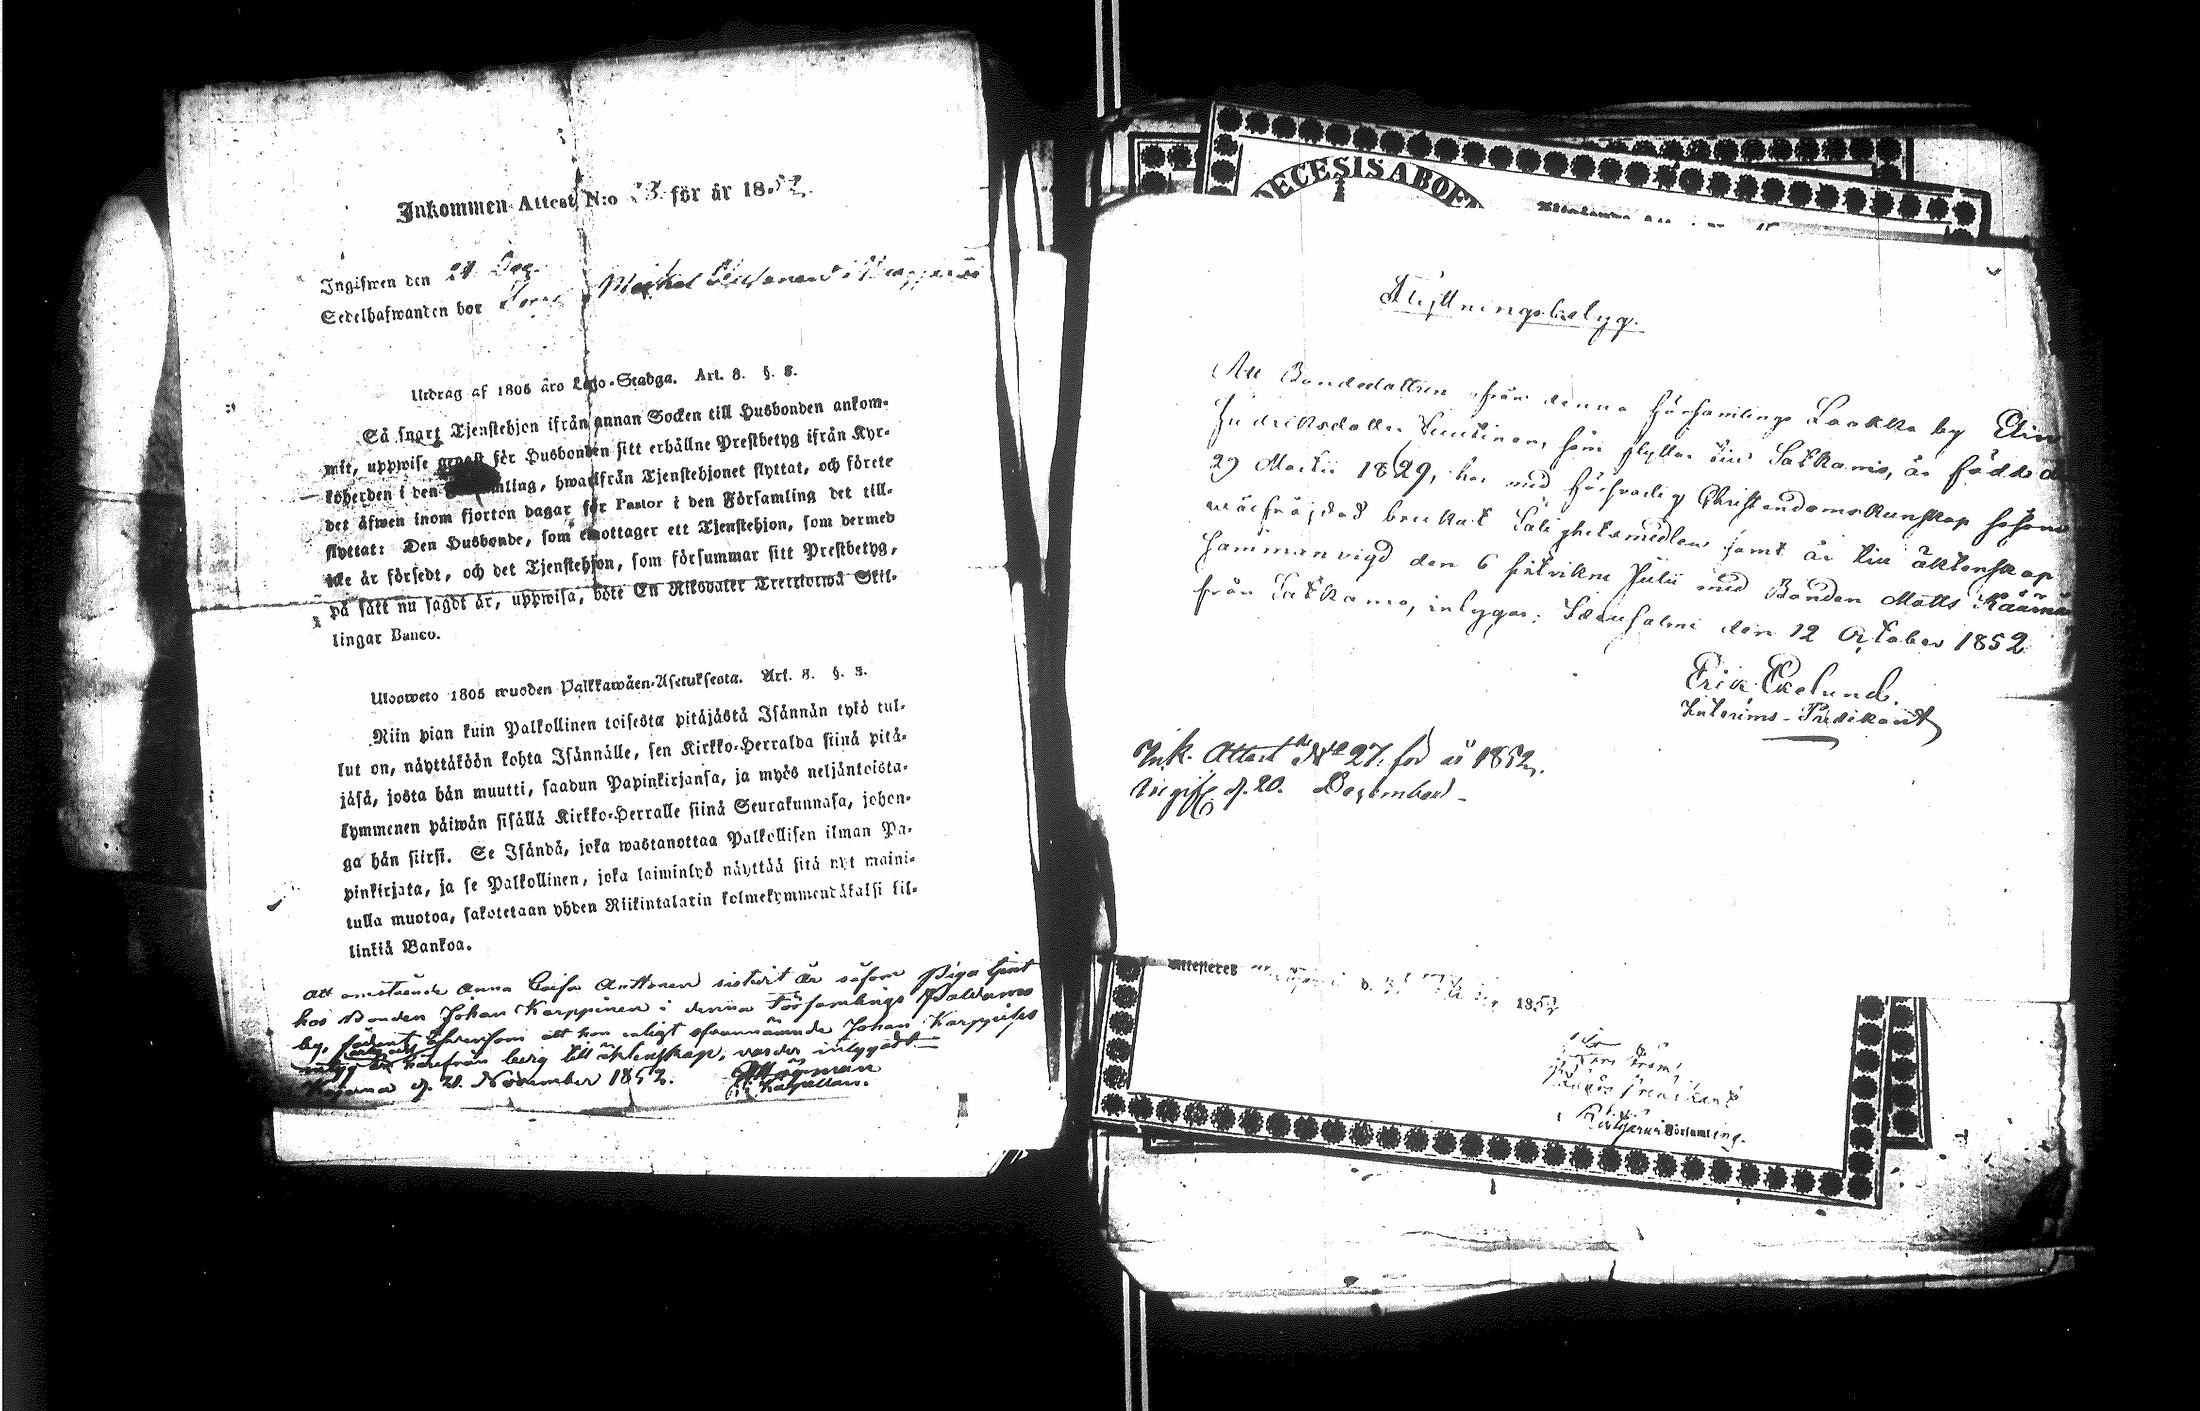 Inkommen Attest N:o 23 för år 1852.
Ingifwen den 24 Dec.
Sedelhafwanden bor hos Michel
Utdrag af 1805 års Lego-Stadga. Art. 8. §. 8.
Så snart Tjenstehjon ifrån annan Socken till Husbonden ankom-
mit, uppwise genast för Husbonden sitt erhållne Prestbetyg ifrån Kyr-
koherden i den Församling, hwarifrån Tjenstehjonet flyttat, och förete
det äfwen inom fjorton dagar för Pastor i den Församling det till-
flyttat: Den Husbonde, som emottager ett Tjenstehjon, som dermed
icke är försedt, och det Tjenstehjon, som försummar sitt Prestbetyg,
på sätt nu sagdt är, uppwisa, böte En Riksdaler Trettiotwå Skil-
lingar Banco.
Ulosweto 1805 wuoden Palkkawäen-Asetuksesta. Art. 8. §. 8.
Niin pian kuin Palkollinen toisesta pitäjästä Isännän tykö tul-
lut on, näyttäköön kohta Isännälle, sen Kirkko-Herralda siinä pitä-
jäsä, josta hän muutti, saadun Papinkirjansa, ja myös neljäntoista-
kymmenen päiwän sisällä Kirkko-Herralle siinä Seurakunnasa, johon-
ga hän siirsi. Se Isändä, joka wastanottaa Palkollisen ilman Pa-
pinkirjata, ja se Palkollinen, joka laiminlyö näyttää sitä nyt maini-
tulla muotoa, sakotetaan yhden Riikintalarin kolmekymmendäkaksi kil-
linkiä Bankoa.
Att omstående Anna Caisa Anttonen sistledit år såsom Piga tjent
hos Bonden Johan Karppinen i denna Församlings Paldamo
by, äfvensom att hon enligt ofvannämnde Johan Karppines
till äktenskap, varder intygadt
Kajana d. 21 November 1852.
Kapellan.
DECESIS ABOEN
Flyttningsbetyg.
Att Bondedottren från denna församlings Laakka by Elin
Hindriksdotter som flyttar till Sotkamo, är född d
29 Martii 1829, har med försvarlig Christendomskunskap
wälfräjdad brukat Salighetsmedlen samt är till äktenskap
sammanvigd den 6 sistvikne Julii med Bonden Matts
från Sotkamo, intygar; Idensalmi den 12 October 1852
Erik Ekelund.
Interims-Predikant
Ink. Attest N:o 27. för år 1852.
Ingift d. 20. December
Attesteres d. 1852
Församling.